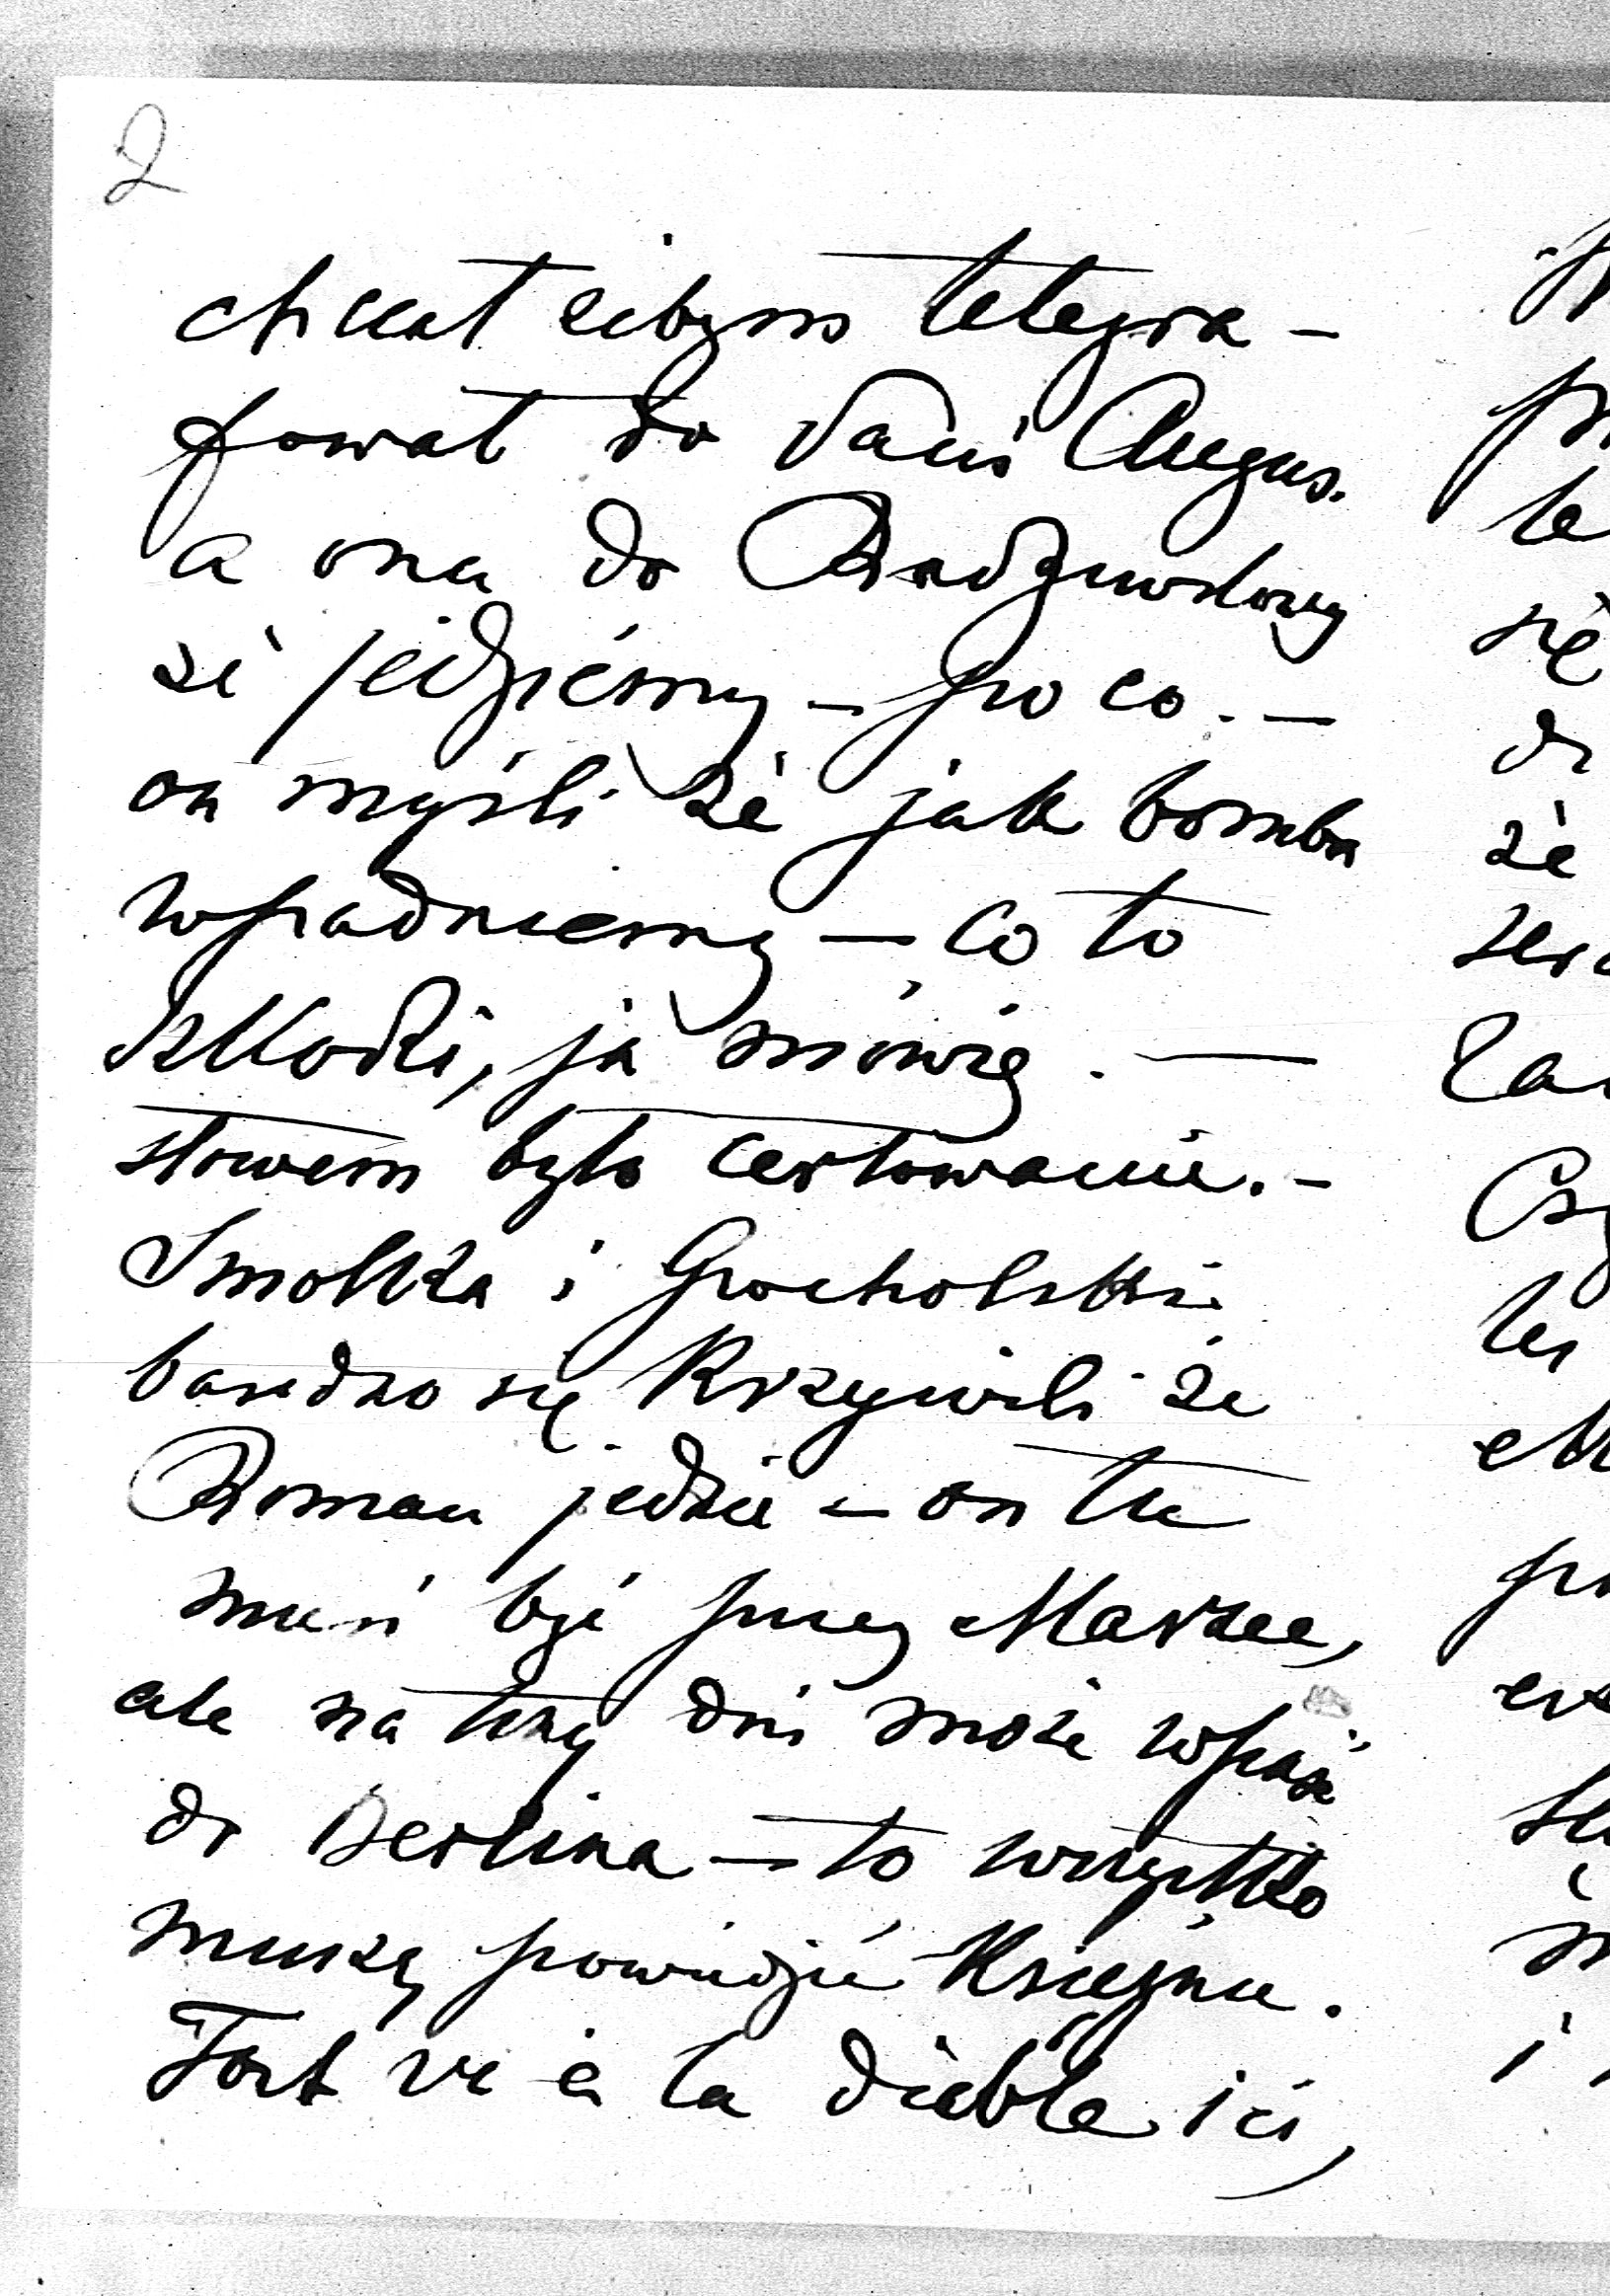 2
chciał żebym telegra-
fował do Pani Augus.
a ona do Radziwiłowy
że jedziémy – po co. –
on myśli że jak bomba
wpadniemy – co to
szkodzi, ja mówię. –
słowem było certowanie. –
Smolka i Grocholski
bardzo się krzywili że
Roman jedzie – on tu
musi być przy Marszał,
ale na trzy dni może wpaść
do Berlina – to wszystko
muszę powiedzieć Księżnie.
Tout va à la diable ici,